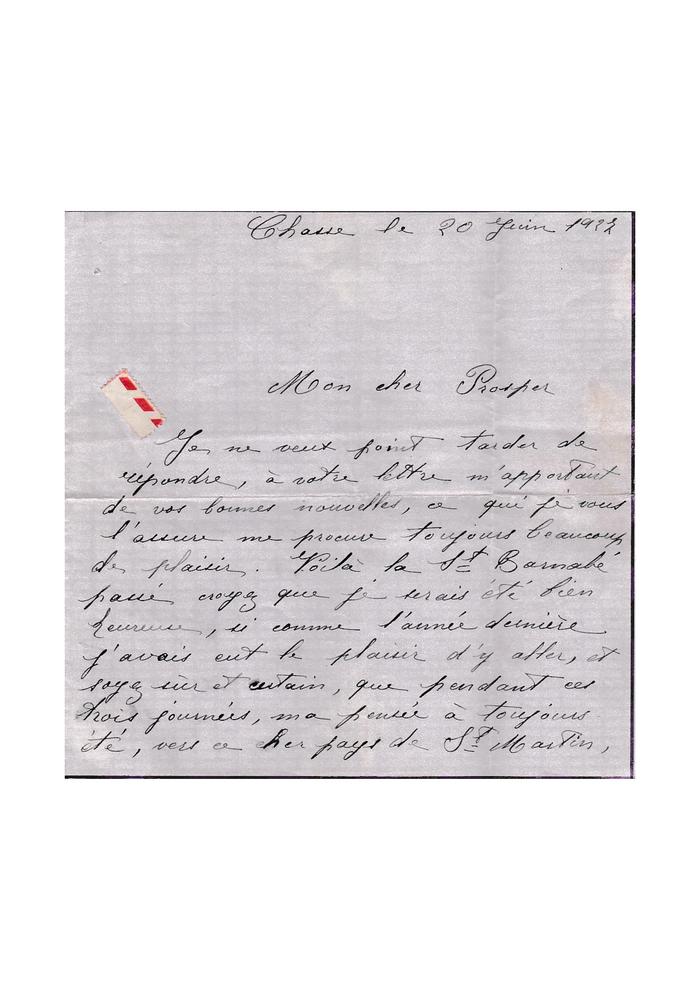 Chasse le 20 Juin 1922
Mon cher Prosper
Je ne veux point tarder de
répondre, à votre lettre m'apportant
de vos bonnes nouvelles, ce qui je vous
l'assure me procure toujours beaucoup
de plaisir. Voilà la St Barnabé
passé croyez que je serais été bien
heureuse, si comme l'année dernière
j'avais eut le plaisir d'y aller, et
soyez sûr et certain, que pendant ces
trois journées, ma pensée à toujours
été, vers ce cher pays de St Martin,